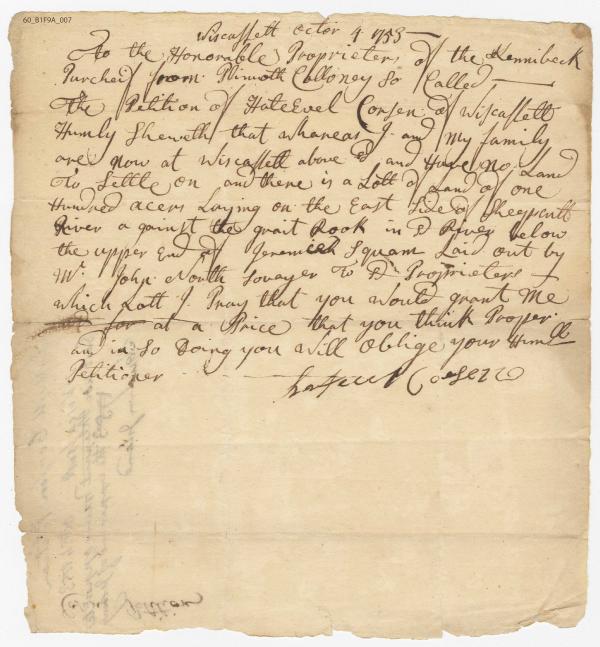 60_B1F9A_007
Wiscassett Octor 4 1753
To the Honorable Proprieters of the Kennibeck
Purches from Plimoth Colloney So Called
the Petition of HateEvel Consen of Wiscassett
Humly Sheweth that whareas I and my family
are now at wiscassett above D and Have no Land
To Settle on and there is a Lott of Land of one
Hundred acers Laying on the East Side of Sheepscutt
River a gainst the grait Rook in D River below
the upper End of Jeremesh Squam Laid out by
Mr John North Sovayer To D Proprieters
which Lott I Pray that you would grant Me
for at a Price that you think Proper
and in So Doing you will oblige your Humlle
Petitioner
Petition